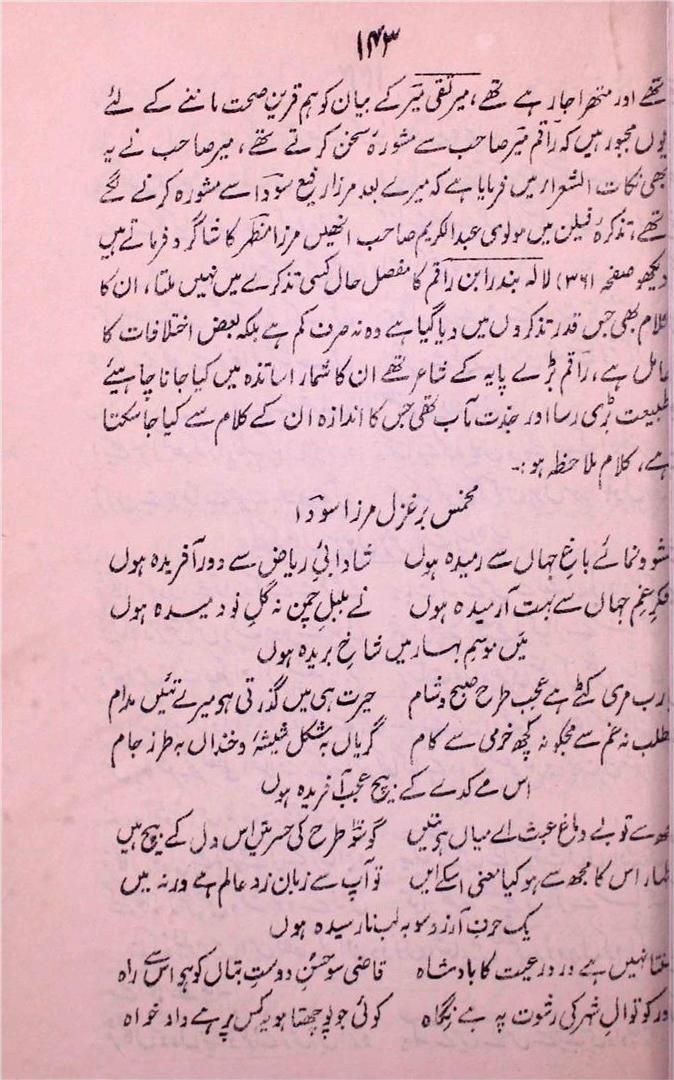 ۱۴۳
تھے اور متھرا جا رہے تھے، میر تقی میر کے بیان کو ہم قرینِ صحت ماننے کے لئے
یوں مجبور ہیں کہ راقم میر صاحب سے مشورۂ سخن کرتے تھے، میر صاحب نے یہ
بھی نکات الشعراء میں فرمایا ہے کہ میرے بعد مرزا رفیع سودا سے مشورہ کرنے لگے
تھے، تذکرۂ فیلن میں مولوی عبدالکریم صاحب انھیں مرزا مظہر کا شاگرد فرماتے ہیں
دیکھو صفحہ (۳۶۱) لالہ بندرابن راقم کا مفصل حال کسی تذکرے میں نہیں ملتا، ان کا
کلام بھی جس قدر تذکروں میں دیا گیا ہے وہ نہ صرف کم ہے بلکہ بعض اختلافات کا
حامل ہے، راقم بڑے پایہ کے شاعر تھے ان کا شمار اساتذہ میں کیا جانا چاہیئے
طبیعت بڑی رسا اور جدت مآب تھی جس کا اندازہ ان کے کلام سے کیا جا سکتا
ہے، کلام ملاحظہ ہو:۔
مخمس بر غزل مرزا سودا
نشو و نمائے باغِ جہاں سے رمیدہ ہوں شادابیِٔ ریاض سے دور آفریدہ ہوں
فکرِ غمِ جہاں سے بہت آرمیدہ ہوں نے بلبلِ چمن نہ گلِ نو دمیدہ ہوں
میں موسمِ بہار میں شاخِ بریدہ ہوں
یارب مری کٹے ہے عجب طرح صبح و شام حیرت ہی میں گذرتی ہو میرے تئیں مدام
مطلب نہ غم سے مجکو نہ کچھ خرمی سے کام گریاں بہ شکل شیشہ و خنداں بہ طرز جام
اس مے کدے کے بیچ عجب آفریدہ ہوں
مجھ سے تو بے دماغ عبث اے میاں ہی تئیں گو سو طرح کی حسرتیں اس دل کے بیچ ہیں
اظہار اس کا مجھ سے ہو کیا معنی اسکے ایں تو آپ سے زبان زدِ عالم ہے ورنہ میں
یک حرفِ آرزو سو بہ لب نا رسیدہ ہوں
سنتا نہیں ہے درد رعیت کا بادشاہ قاضی سو حسنِ دوستِ بتاں کو ہو اس سے راہ
اور کوتوالِ شہر کی رشوت پہ ہے نگاہ کوئی جو پوچھتا ہو یہ کس پر ہے داد خواہ